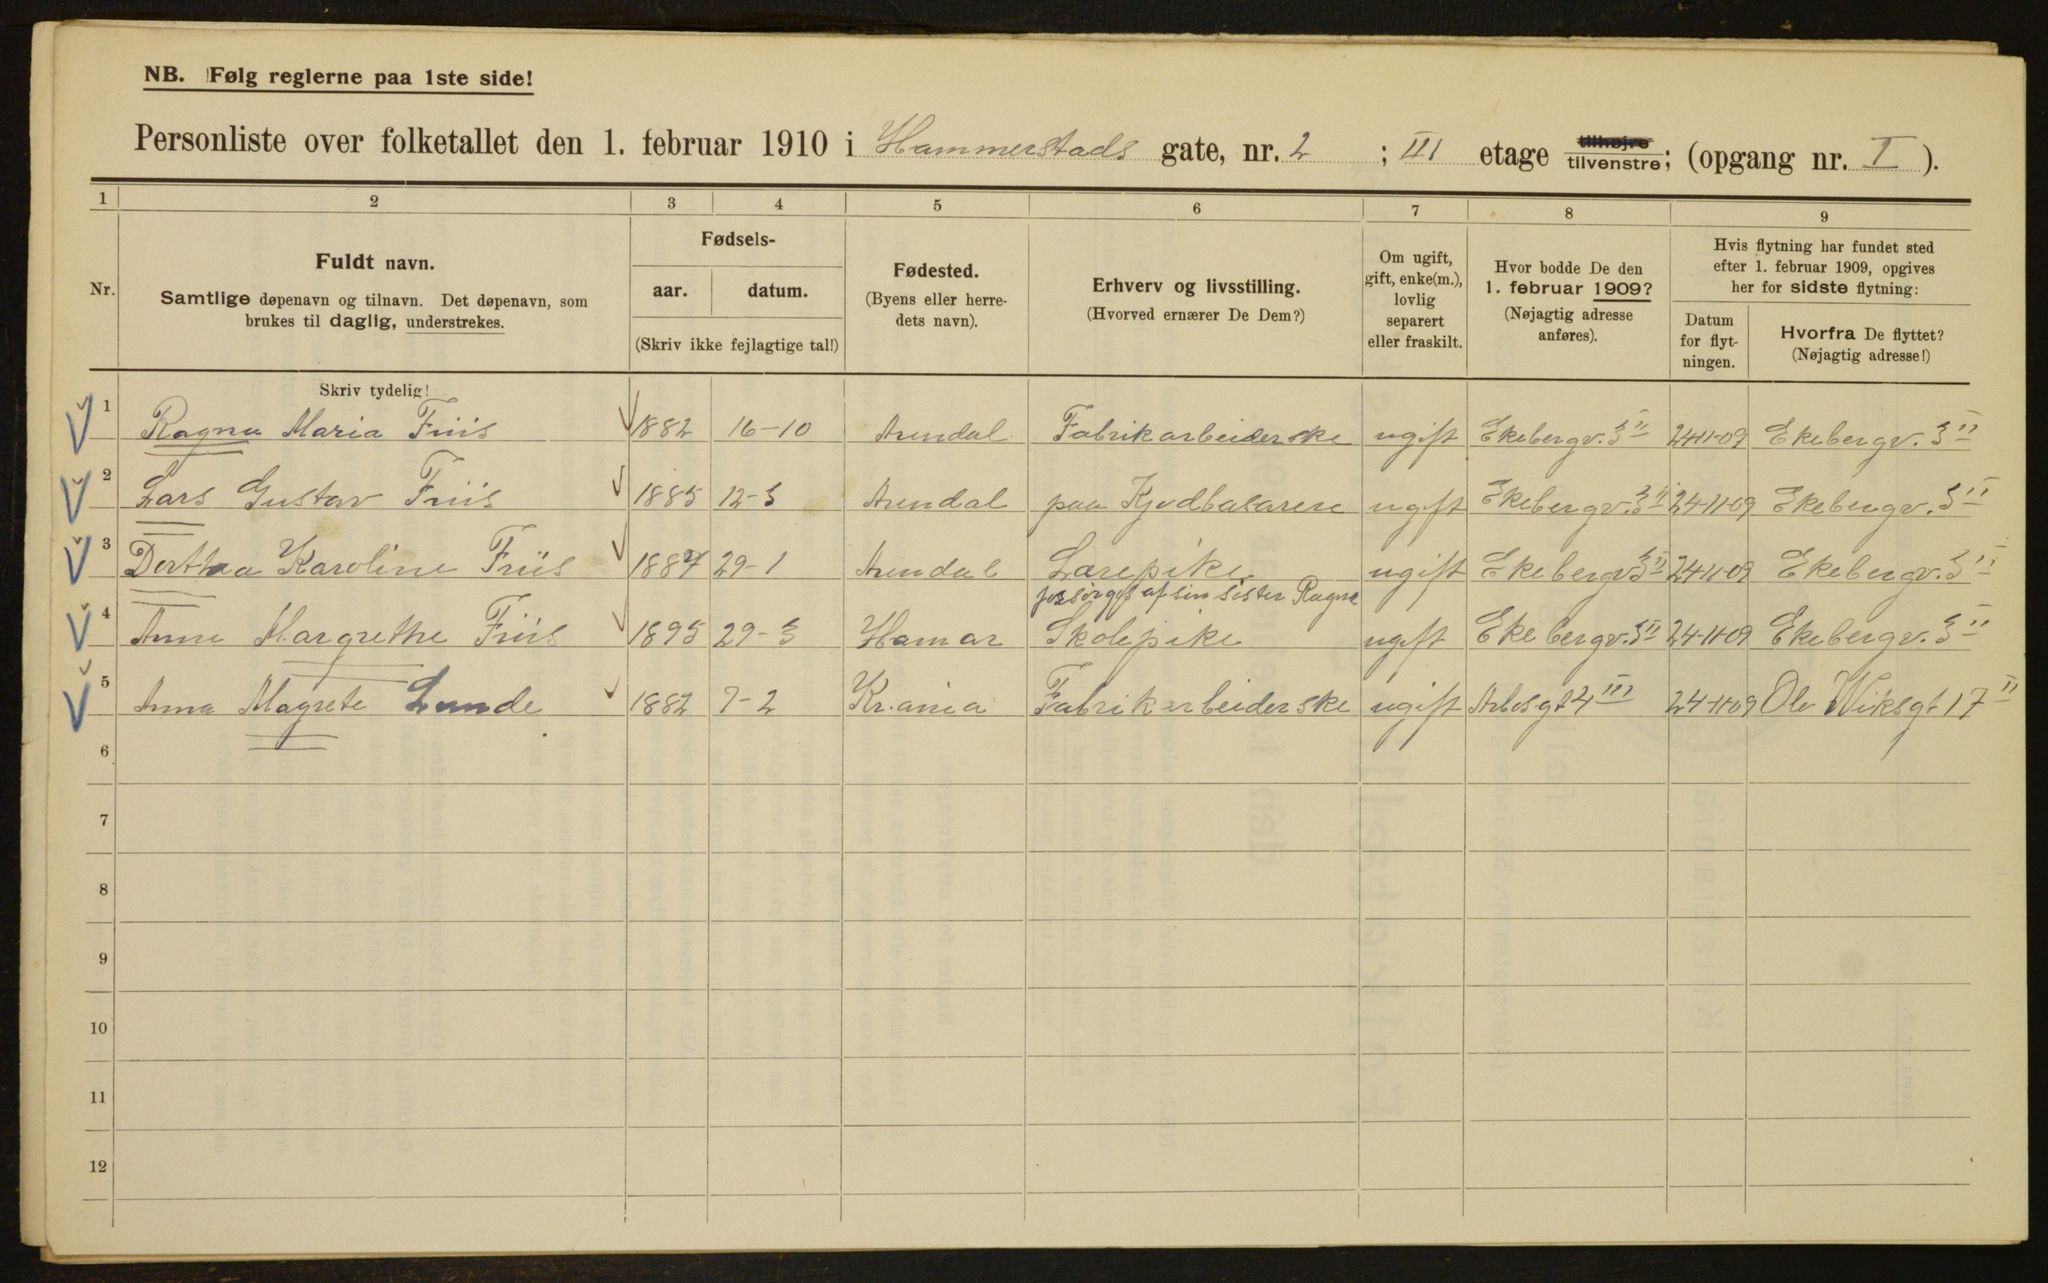 NB. Følg reglerne paa 1ste side!
Personliste over folketallet den 1. februar 1910 i Hammerstads gate, nr. 2 ; III etage tilhøjre tilvenstre; (opgang nr. I ).
1 2 3 4 5 6 7 8 9
Nr.
Fuldt navn.
Samtlige døpenavn og tilnavn. Det døpenavn, som
brukes til daglig, understrekes.
Fødsels-
aar. datum.
(Skriv ikke fejlagtige tal!)
Fødested.
(Byens eller herre-
dets navn).
Erhverv og livsstilling.
(Hvorved ernærer De Dem?)
Om ugift,
gift, enke(m.),
lovlig
separert
eller fraskilt.
Hvor bodde De den
1. februar 1909?
(Nøjagtig adresse
anføres).
Hvis flytning har fundet sted
efter 1. februar 1909, opgives
her for sidste flytning:
Datum
for flyt-
ningen.
Hvorfra De flyttet?
(Nøjagtig adresse!)
Skriv tydelig!
1 Ragna Maria Friis 1882 16-10 Arendal Fabrikarbeiderske ugift Ekebergv. 3 II 24-11-09 Ekebergv. 3 II
2 Lars Gustav Friis 1885 12-3 Arendal paa Kjødbasaren ugift Ekebergv. 3 II 24-11-09 Ekebergv. 3 II
3 Dorthea Karoline Friis 1887 29-1 Arendal Lærepike ugift Ekebergv 3 II 24-11-09 Ekebergv. 3 II
forsørges af sin søster Ragna
4 Anne Margrethe Friis 1895 29-3 Hamar Skolepike ugift Ekebergv. 3 II 24-11-09 Ekebergv. 3 II
5 Anna Magrete Lunde 1882 7-2 Kr.ania Fabrikarbeiderske ugift Arbosgt 4 III 24-11-09 Ole Wiksgt 17 II
6
7
8
9
10
11
12